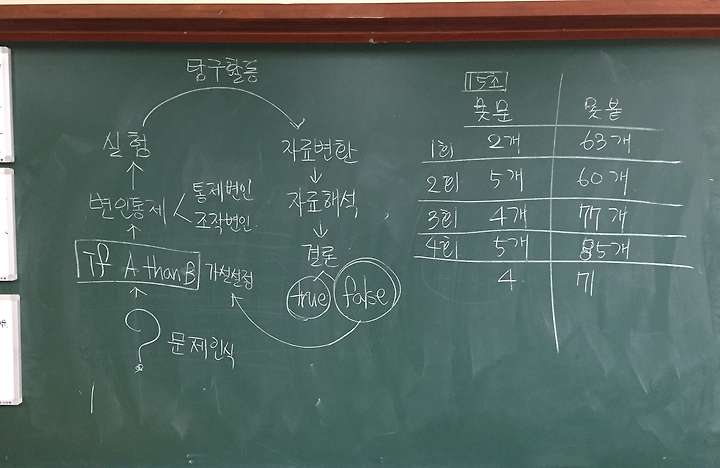 탐구활동
실험
변인통제
통제변인
조작변인
If A than B
가설설정
?
문제인식
자료변환
자료해석
결론
true false
5조
못문 못붙
1회 2개 63개
2회 5개 60개
3회 4개 77개
4회 5개 85개
4 71